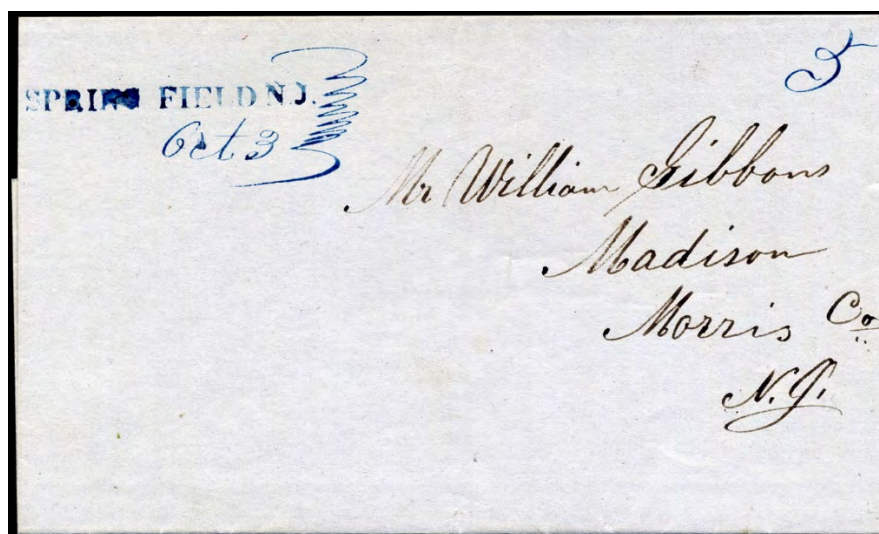 5
SPRING FIELD N.J.
Oct 3
Mr William Gibbons
Madison
Morris Co
N.J.